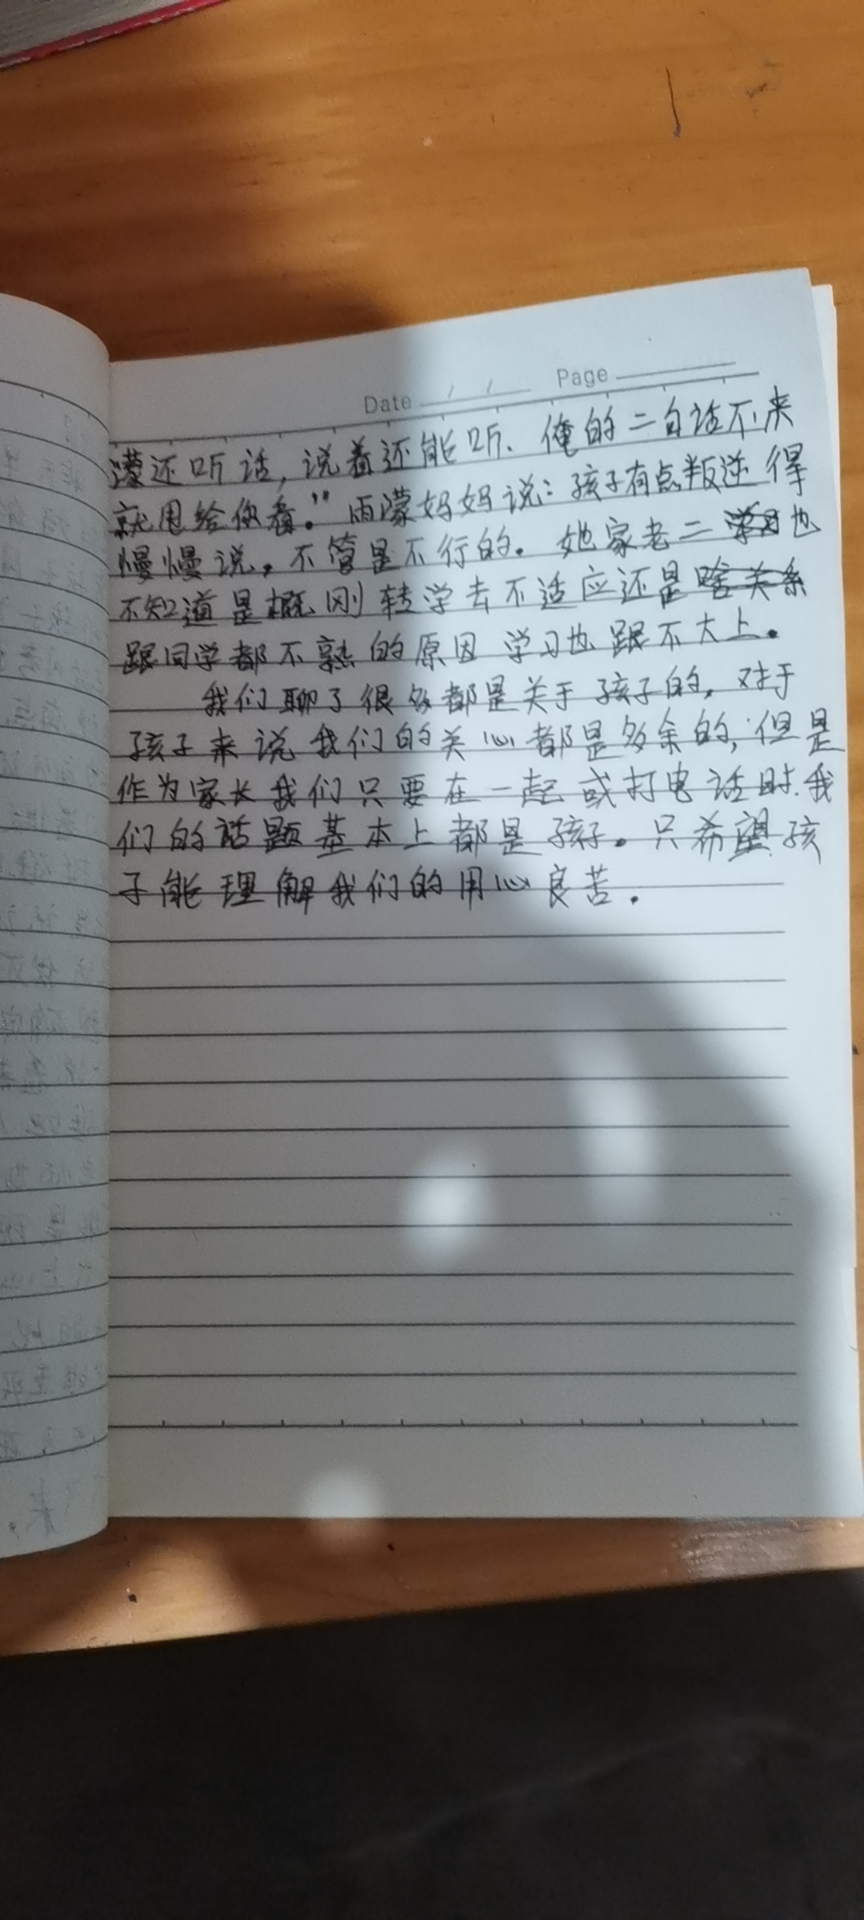 Date / / Page
濛还听话，说着还能听、俺的二句话不来
就甩给你看。”雨濛妈妈说：孩子有点叛逆得
慢慢说。不管是不行的。她家老二学习也
不知道是概刚转学去不适应还是啥关系
跟同学都不熟的原因学习也跟不大上。
我们聊了很多都是关于孩子的，对于
孩子来说我们的关心都是多余的，但是
作为家长我们只要在一起或打电话时、我
们的话题基本上都是孩子。只希望孩
子能理解我们的用心良苦．